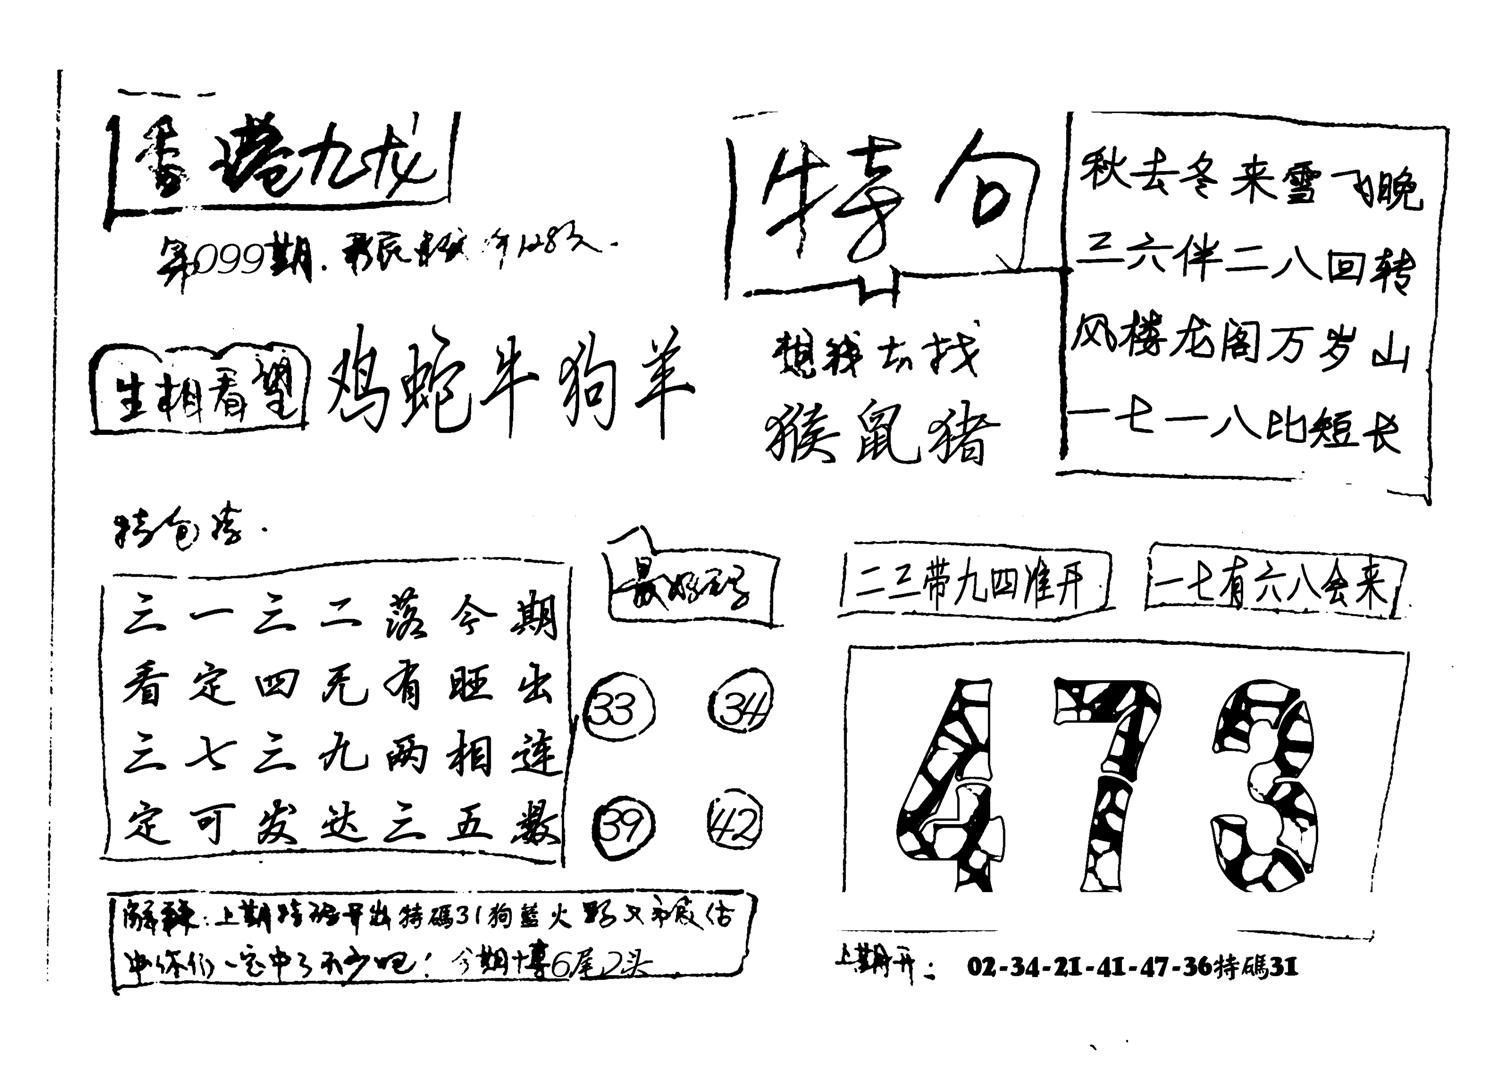 香港九龙
第099期.
特句
秋去冬来雪飞晚
三六伴二八回转
风楼龙阁万岁山
一七一八比短长
生相看望
鸡蛇牛狗羊
想我去找
猴鼠猪
三一三二落今期
看定四无有旺出
三七三九两相连
定可发达三五数
最好码
33 34
39 42
二三带九四准开
一七有六八会来
473
解: 上期特码开出特碼31狗藍火
你们一定中了不少吧! 今期博6尾2头
上期开: 02-34-21-41-47-36特碼31